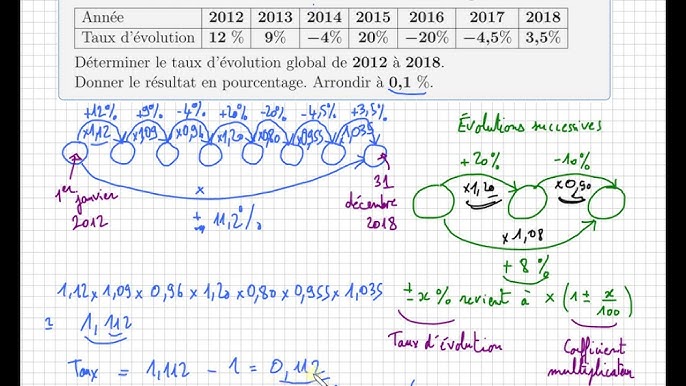 Année 2012 2013 2014 2015 2016 2017 2018
Taux d'évolution 12 % 9% −4% 20% −20% −4,5% 3,5%
Déterminer le taux d'évolution global de 2012 à 2018.
Donner le résultat en pourcentage. Arrondir à 0,1 %.
+12% +9% -4% +20% -20% -4,5% +3,5%
×1,12 ×1,09 ×0,96 ×1,20 ×0,80 ×0,955 ×1,035
1er janvier 2012
×
+ 11,2%
31 décembre 2018
Évolutions successives
+20% -10%
×1,20 ×0,90
×1,08
+8%
1,12 × 1,09 × 0,96 × 1,20 × 0,80 × 0,955 × 1,035
≃ 1,112
Taux = 1,112 - 1 = 0,112
± x % revient à × (1 ± x/100)
Taux d'évolution
Coefficient multiplicateur